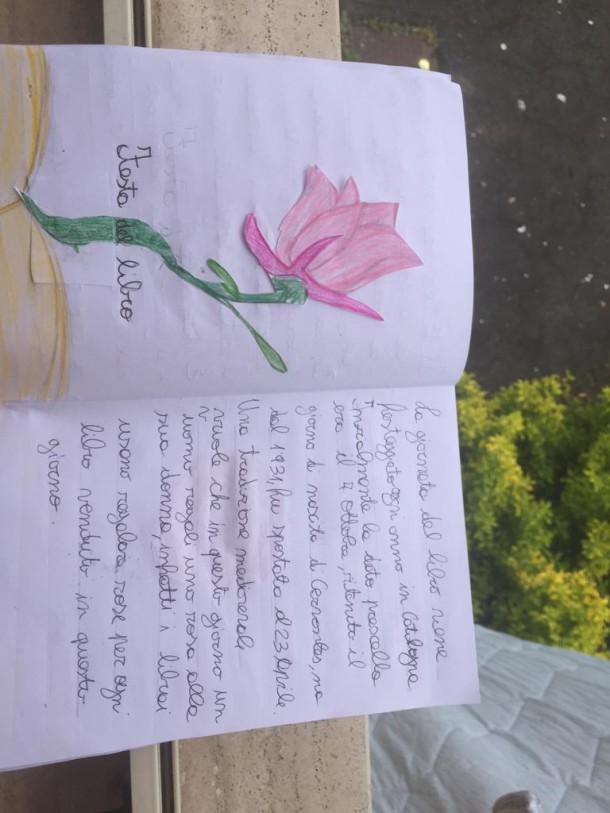 Festa del libro
La giornata del libro viene
festeggiata ogni anno in Catalogna
Inizialmente la data prescelta
era il 7 Ottobre, ritenuto il
giorno di nascita di Cervantes, ma
dal 1931, fu spostata al 23 Aprile.
Una tradizione medioevale
vuole che in questo giorno un
uomo regali una rosa alla
sua donna, infatti i librai
usano regalare rose per ogni
libro venduto in questo
giorno.